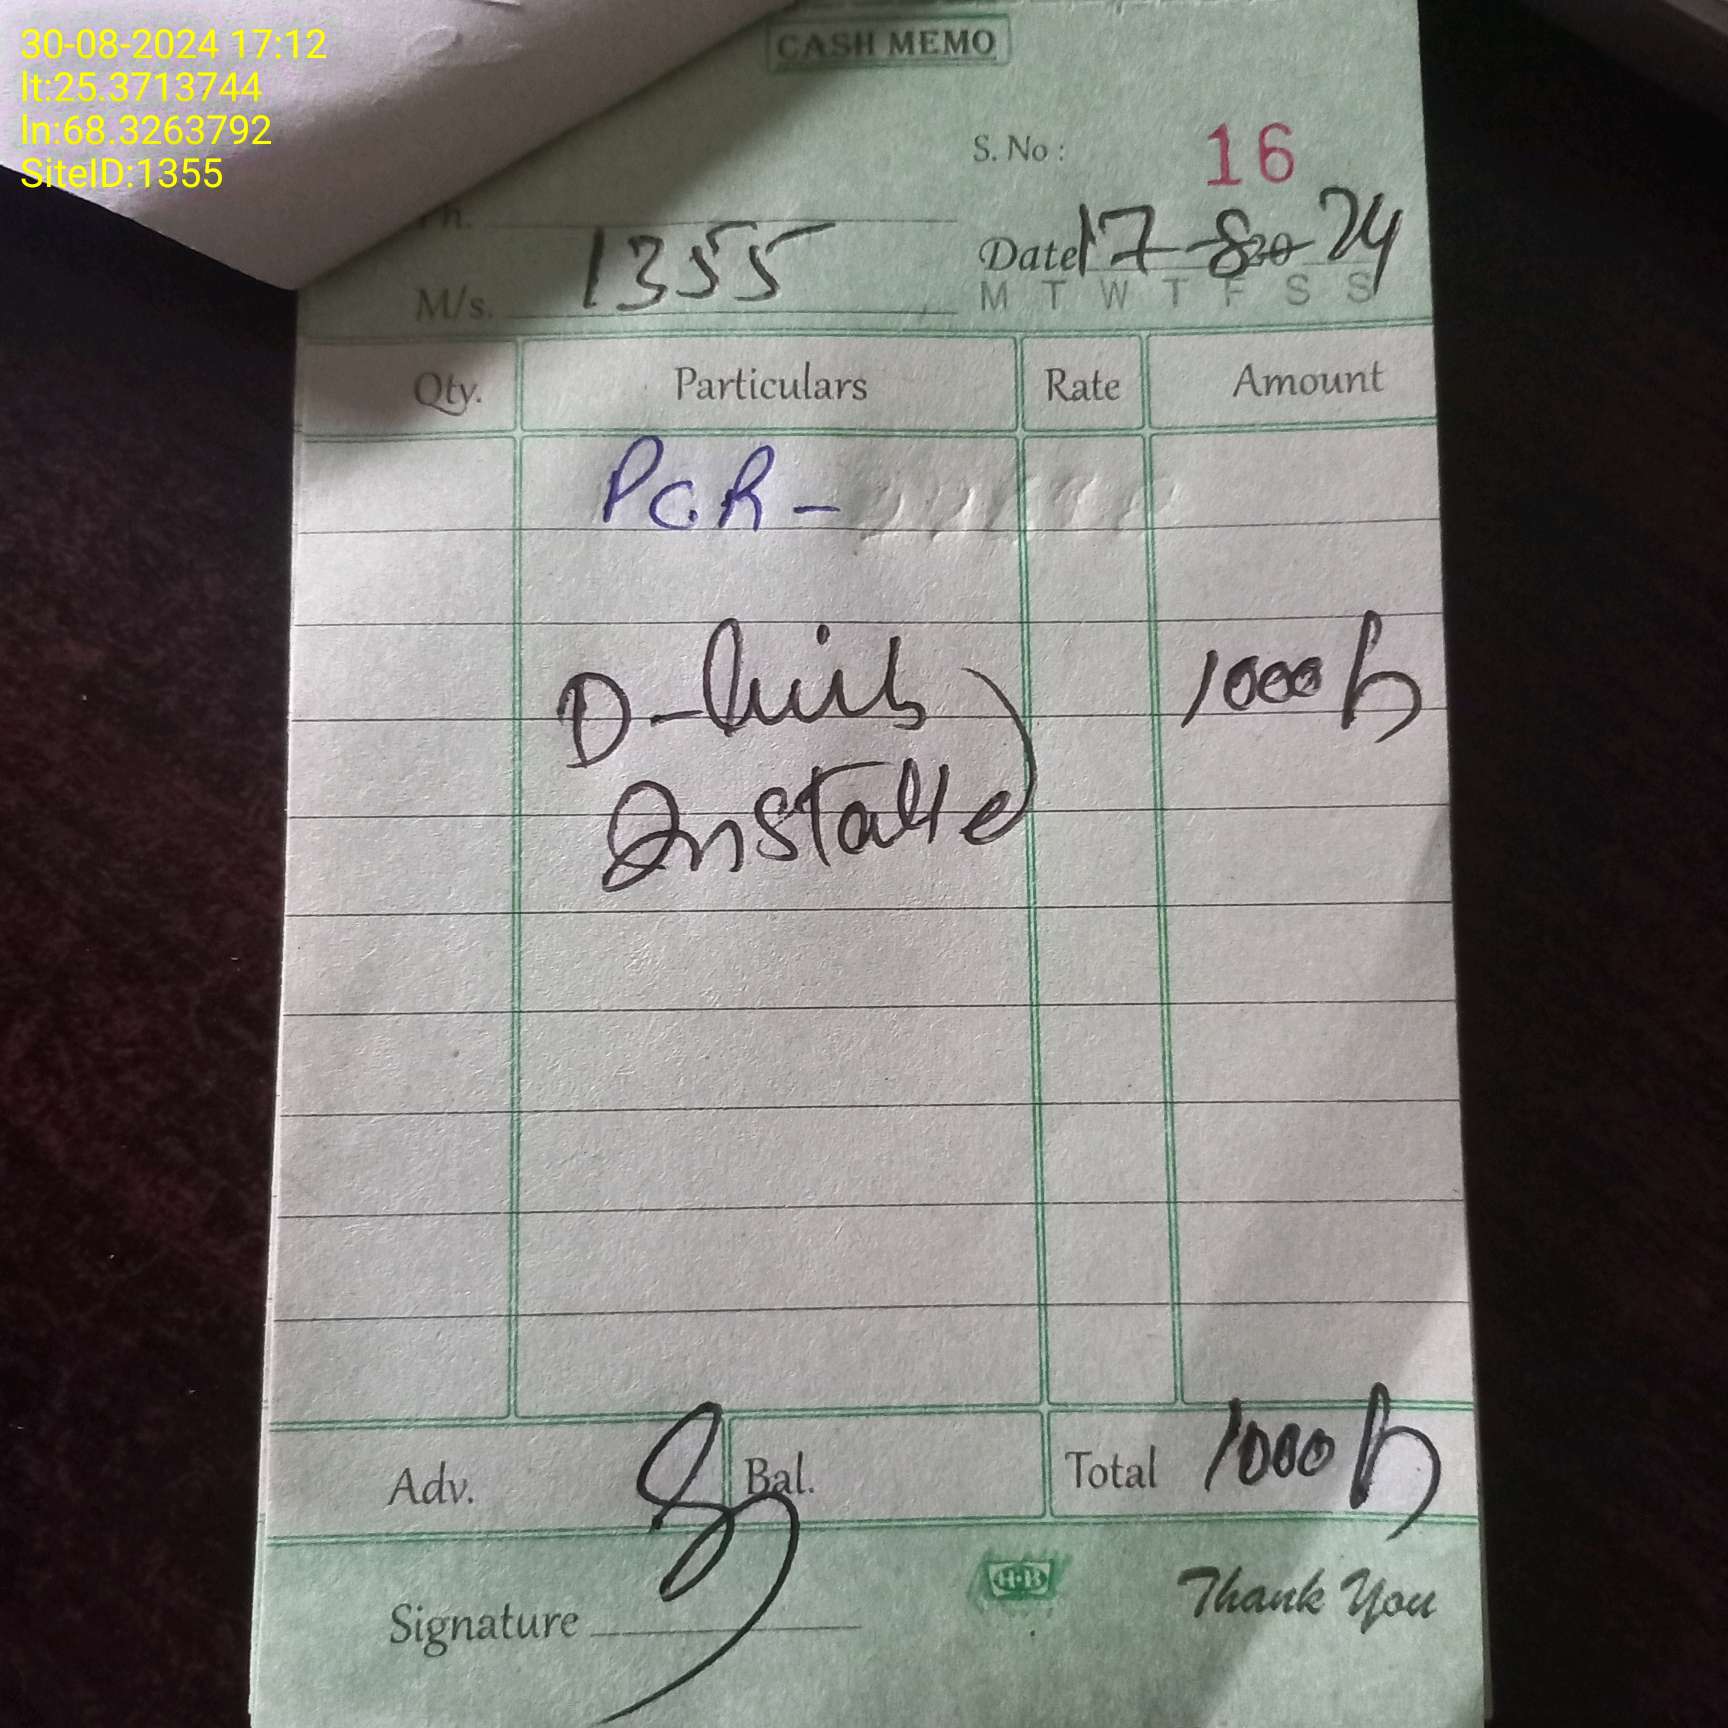 30-08-2024 17:12
lt:25.3713744
ln:68.3263792
SiteID:1355
CASH MEMO
S. No : 16
Ph.
M/s. 1355
Date 17-8-20 24
M T W T F S S
Qty. Particulars Rate Amount
P.C.R -
D- 1000
Total 1000
Adv. Bal.
H-B
Thank You
Signature